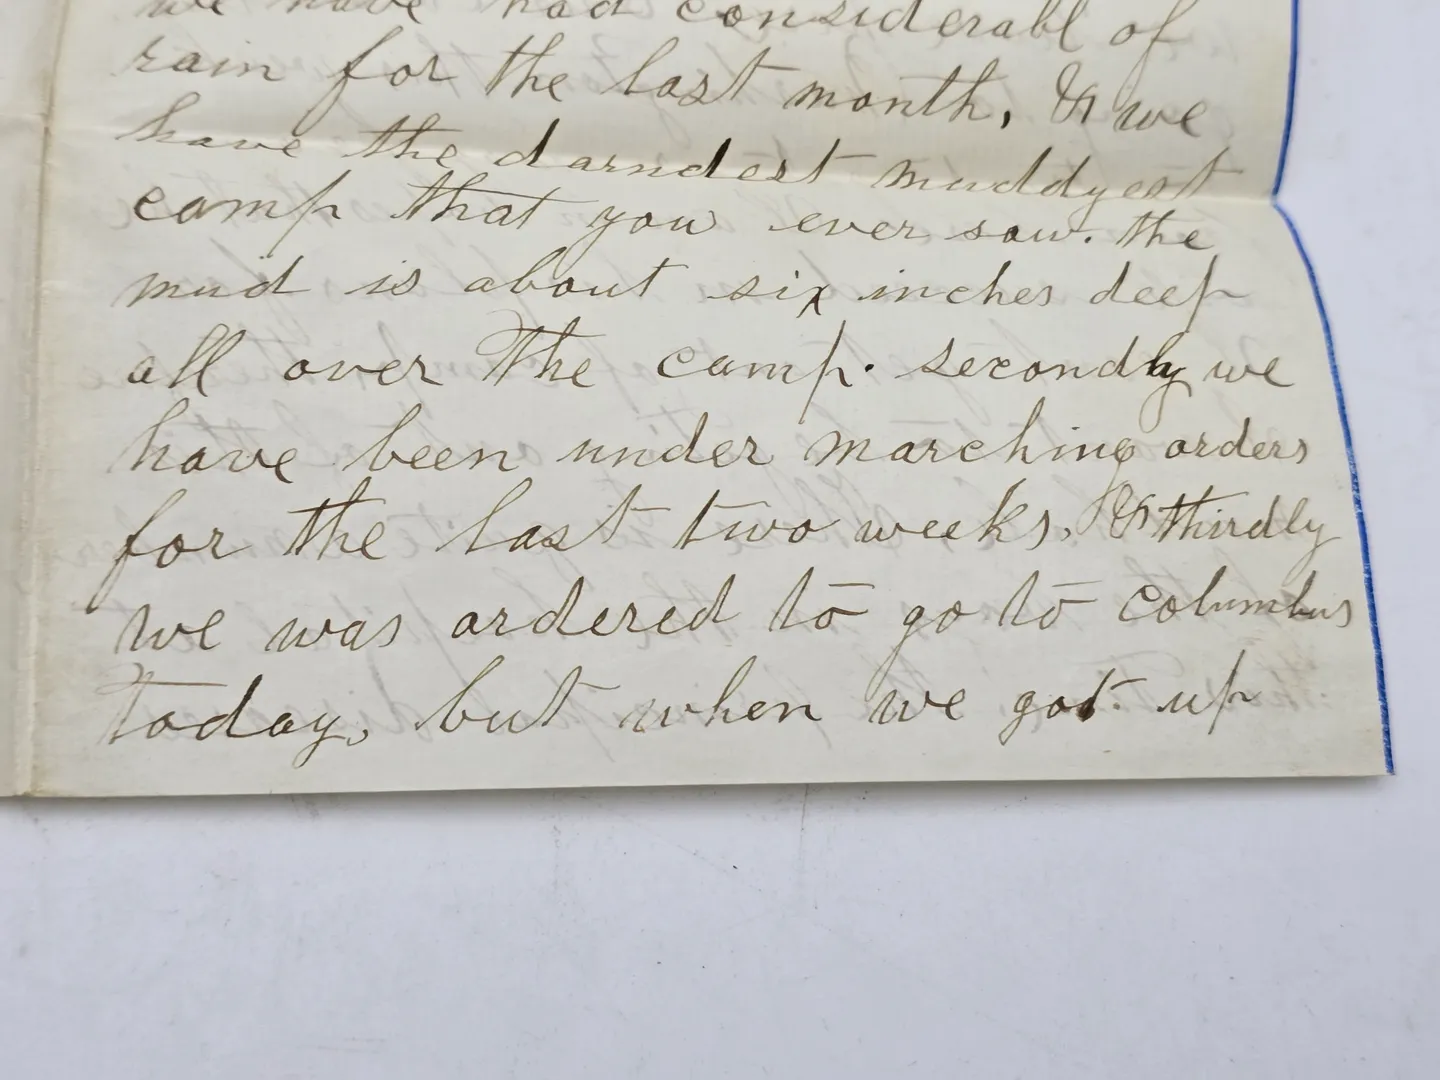 we have had considerabl of
rain for the last month, & we
have the darndest muddyest
camp that you ever saw. the
mud is about six inches deep
all over the camp. secondly we
have been under marching orders
for the last two weeks, & thirdly
we was ordered to go to columbus
today, but when we got up